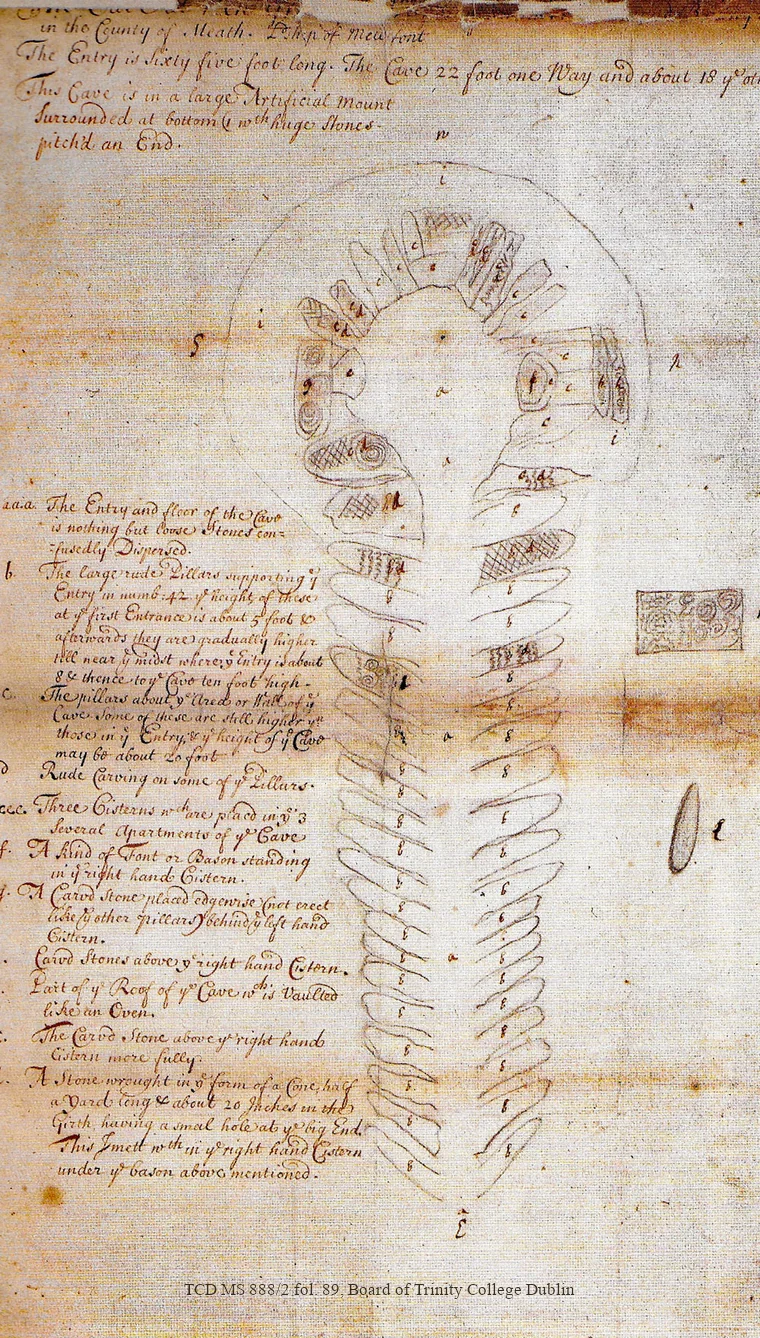 in the County of Meath.
The Entry is Sixty five foot long. The Cave 22 foot one Way and about 18 yᵉ
This Cave is in a large Artificial Mount
Surrounded at bottom wᵗʰ huge Stones
pitch'd an End.
w
i
i
S
a
i
a
a.a.a. The Entry and floor of the Cave
is nothing but loose Stones con-
-fusedly Dispersed.
b. The large rude Pillars supporting yᵉ
Entry in numb: 42 yᵉ height of these
at yᵉ first Entrance is about 5 foot &
afterwards they are gradually higher
till near yᵉ midst where yᵉ Entry is about
8 & thence to yᵉ Cave ten foot high-
c. The pillars about yᵉ Area or Wall of yᵉ
Cave some of these are still higher yⁿ
those in yᵉ Entry, & yᵉ height of yᵉ Cave
may be about 20 foot
d Rude Carving on some of yᵉ Pillars.
eee. Three Cisterns wᶜʰ are placd in yᵉ 3
Several Apartments of yᵉ Cave
f. A kind of Font or Bason standing
in yᵉ right hand Cistern.
g. A Carvd Stone placed edgewise (not erect
like yᵉ other pillars) behind yᵉ left hand
Cistern.
Carvd Stones above yᵉ right hand Cistern.
Part of yᵉ Roof of yᵉ Cave wᶜʰ is Vaulted
like an Oven.
The Carvd Stone above yᵉ right hand
Cistern more fully.
A Stone wrought in yᵉ form of a Cone, half
a yard long & about 20 Inches in the
Girth, having a smal hole at yᵉ big End.
This I mett wᵗʰ in yᵉ right hand Cistern
under yᵉ bason above mentioned.
a
l
a
E
TCD MS 888/2 fol. 89, Board of Trinity College Dublin